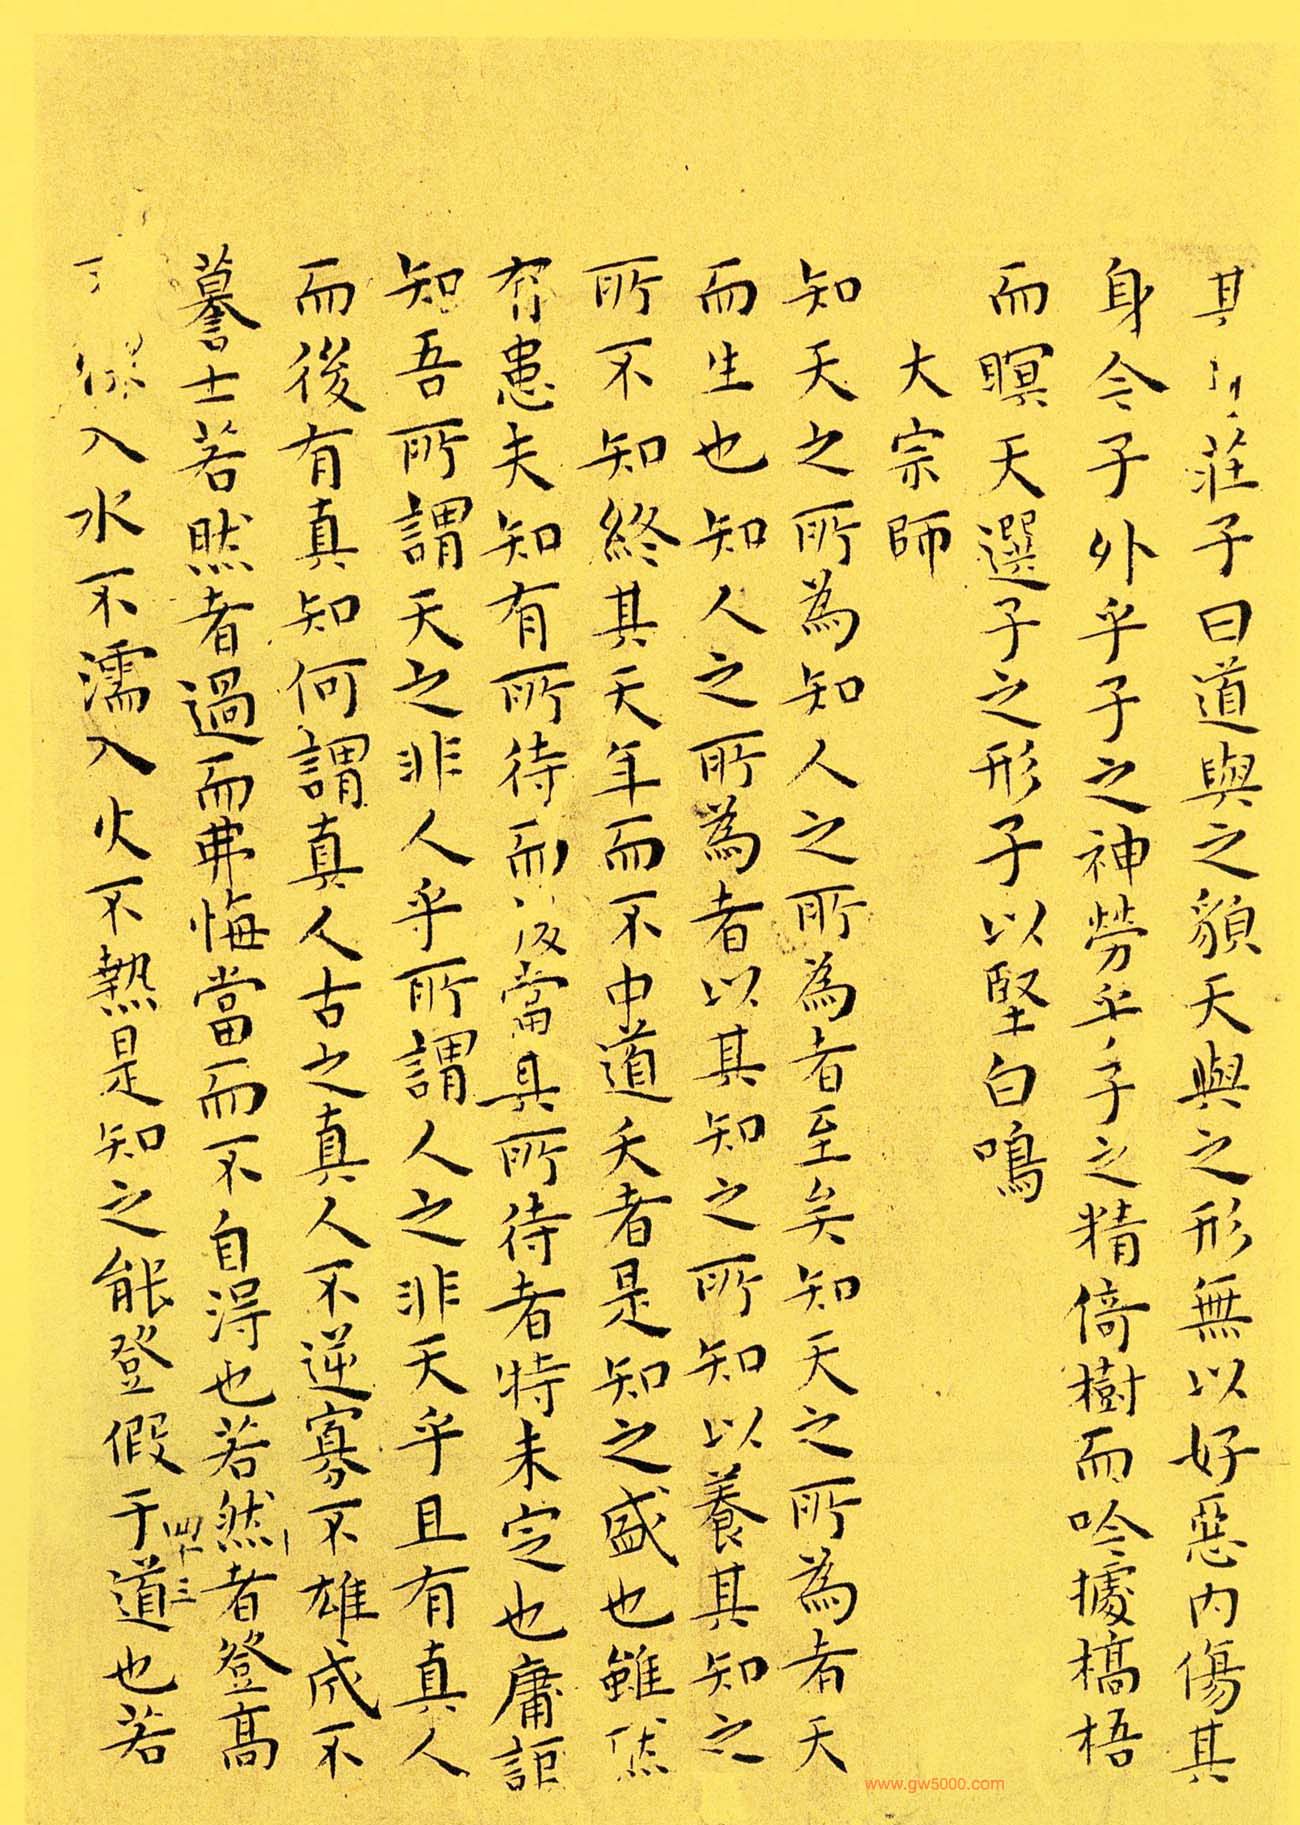 其
莊子曰道與之貌天與之形無以好惡內傷其
身今子外乎子之神勞乎子之精倚樹而吟據槁梧
而瞑天選子之形子以堅白鳴
大宗師
知天之所為知人之所為者至矣知天之所為者天
而生也知人之所為者以其知之所知以養其知之
所不知終其天年而不中道夭者是知之盛也雖然
有患夫知有所待而後當其所待者特未定也庸詎
知吾所謂天之非人乎所謂人之非天乎且有真人
而後有真知何謂真人古之真人不逆寡不雄成不
謩士若然者過而弗悔當而不自得也若然者登高
不慄入水不濡入火不熱是知之能登假于道也若
四十三
www.gw5000.com